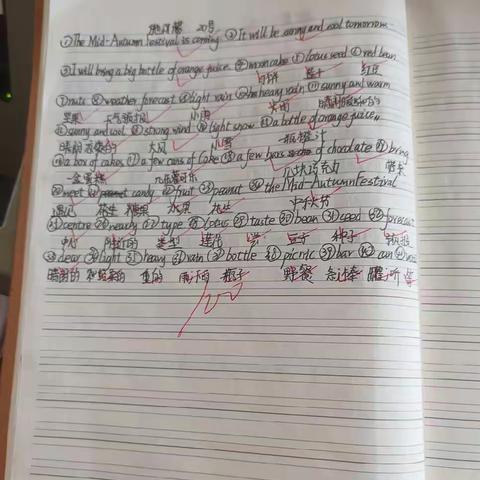 20号
①The Mid-Autumn Festival is coming. ②It will be sunny and cool tomorrow.
③I will bring a big bottle of orange juice. ④moon cake ⑤lotus seed ⑥red bean
月饼 莲子 红豆
⑦nuts ⑧weather forecast ⑨light rain ⑩heavy rain ⑪sunny and warm
坚果 天气预报 小雨 大雨 晴朗的
⑫sunny and cool ⑬strong wind ⑭light snow ⑮a bottle of orange juice
晴朗 大风 小雪 一瓶橙汁
⑯a box of cakes ⑰a few cans of Coke ⑱a few bars of chocolate ⑲bring
一盒蛋糕 几听可乐 几块巧克力 带来
⑳meet candy fruit peanut the Mid-Autumn Festival
遇见 糖果 水果 花生 中秋节
centre nearby type lotus taste bean seed forecast
中心 附近的 类型 莲花 豆子 种子 预报
clear light heavy rain bottle picnic bar can
晴朗的 重的 雨 瓶子 野餐 条 罐 听